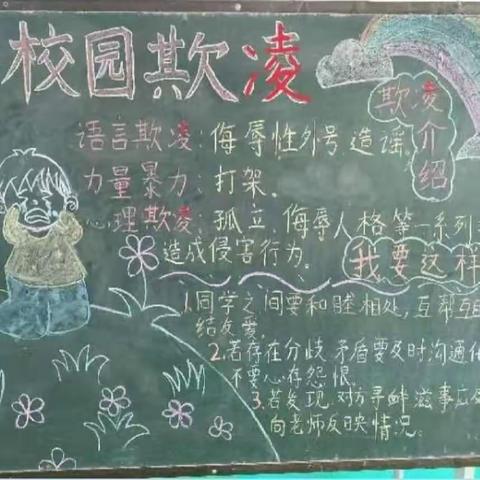 校园欺凌
欺凌介绍
语言欺凌：侮辱性外号 造谣。
力量暴力：打架。
心理欺凌：孤立、侮辱人格等一系列
造成侵害行为。
我要这样
1.同学之间要和睦相处,互帮互
结友爱
2.若存在分歧,矛盾要及时沟通
不要心存怨恨。
3.若发现对方寻衅滋事应
向老师反映情况。